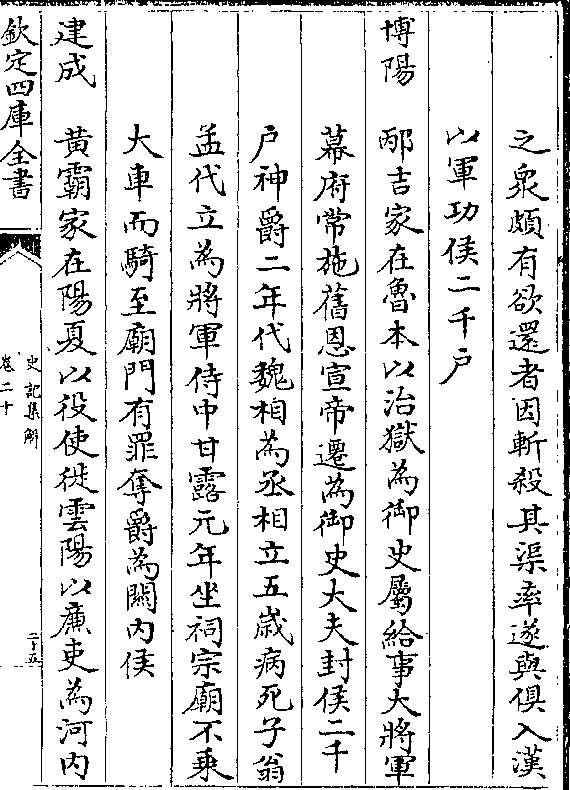 之衆頗有欲還者因斬殺其渠率遂與俱入漢
以軍功侯二千戶
博陽　邴吉家在魯本以治獄為御史屬給事大將軍
幕府常施舊恩宣帝遷為御史大夫封侯二千
戶神爵二年代魏相為丞相立五歲病死子翁
孟代立為將軍侍中甘露元年坐祠宗廟不乗
大車而騎至廟門有罪奪爵為關內侯
建成　黄霸家在陽夏以役使徙雲陽以廉吏為河内
欽定四庫全書
史記集解
卷二十
二十五